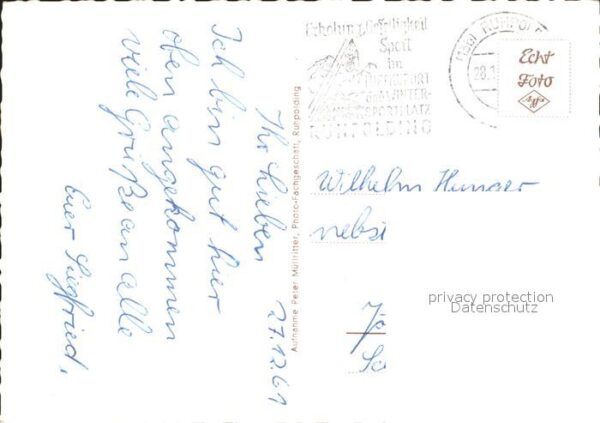 Ihr Lieben 27.12.61
Ich bin gut hier
oben angekommen
viele Grüße an alle
Euer Siegfried.
Aufnahme Peter Müllritter, Photo-Fachgeschäft, Ruhpolding
Erholung Geselligkeit
Sport
im
KURORT
WINTER-
SPORTPLATZ
RUHPOLDING
RUHPOLD
28.
Echt
Foto
Agfa
Wilhelm
nebst
privacy protection
Datenschutz